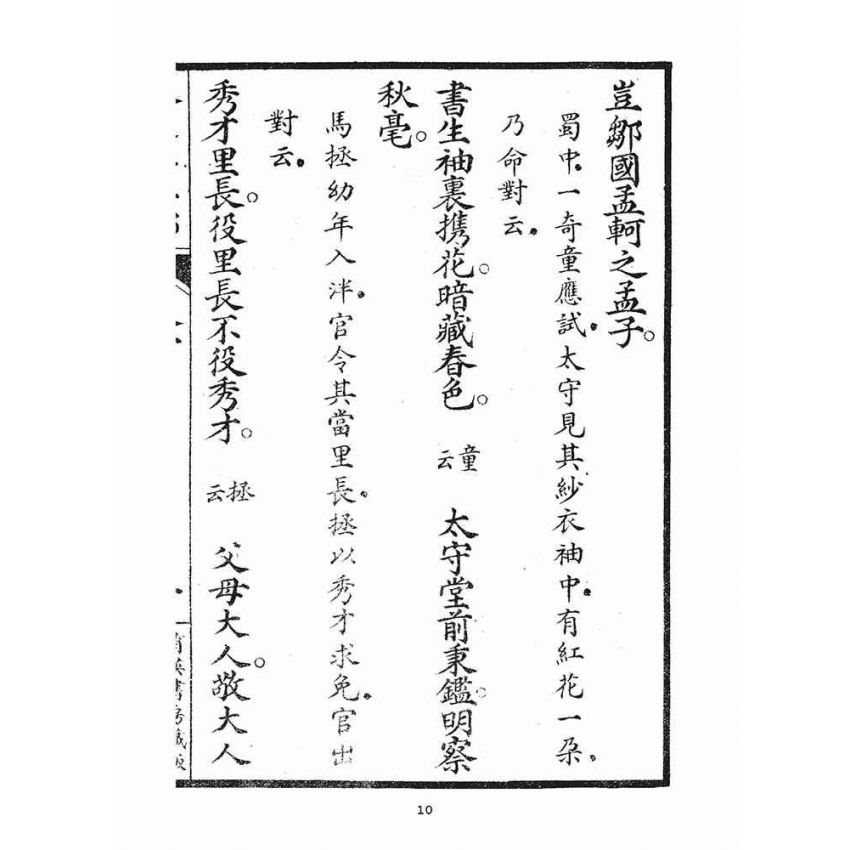 豈鄒國孟軻之孟子。
蜀中一奇童應試。太守見其紗衣袖中。有紅花一朵。
乃命對云。
書生袖裏携花。暗藏春色。童云 太守堂前秉鑑。明察
秋毫。
馬拯幼年入泮。官令其當里長。拯以秀才求免。官出
對云。
秀才里長。役里長不役秀才。拯云 父母大人。敬大人
10